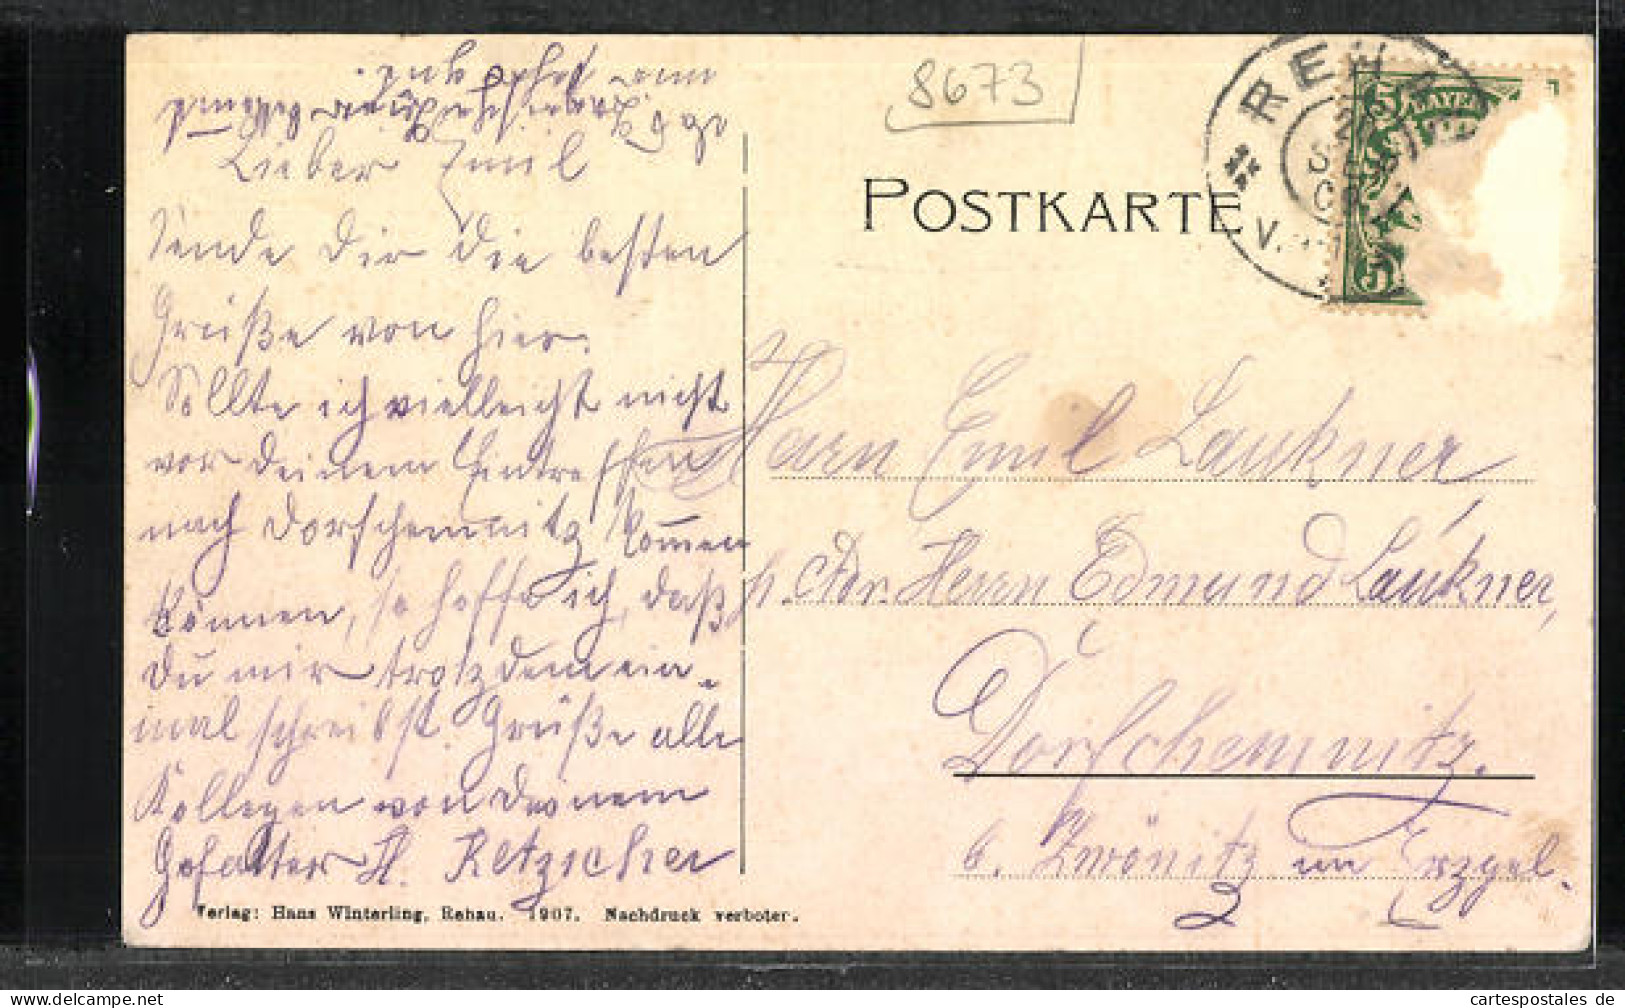 8673
POSTKARTE
REHAU
20
SEP
V.
BAYERN
5
5
Lieber Emil
Sende Dir die besten
Grüße von hier.
Sollte ich vielleicht nicht
vor Deinem Eintreffen
nach Dorfchemnitz kommen
können, so hoffe ich, daß
Du mir trotzdem ein-
mal schreibst. Grüße alle
Kollegen von Deinem
Gefatter A. Retzscher
mir sehr gut.
Herrn Emil Laukner
p. Adr. Herrn Edmund Laukner,
Dorfchemnitz.
b. Zwönitz im Erzgeb.
Verlag: Hans Winterling, Rehau. 1907. Nachdruck verboten.
cartespostales de